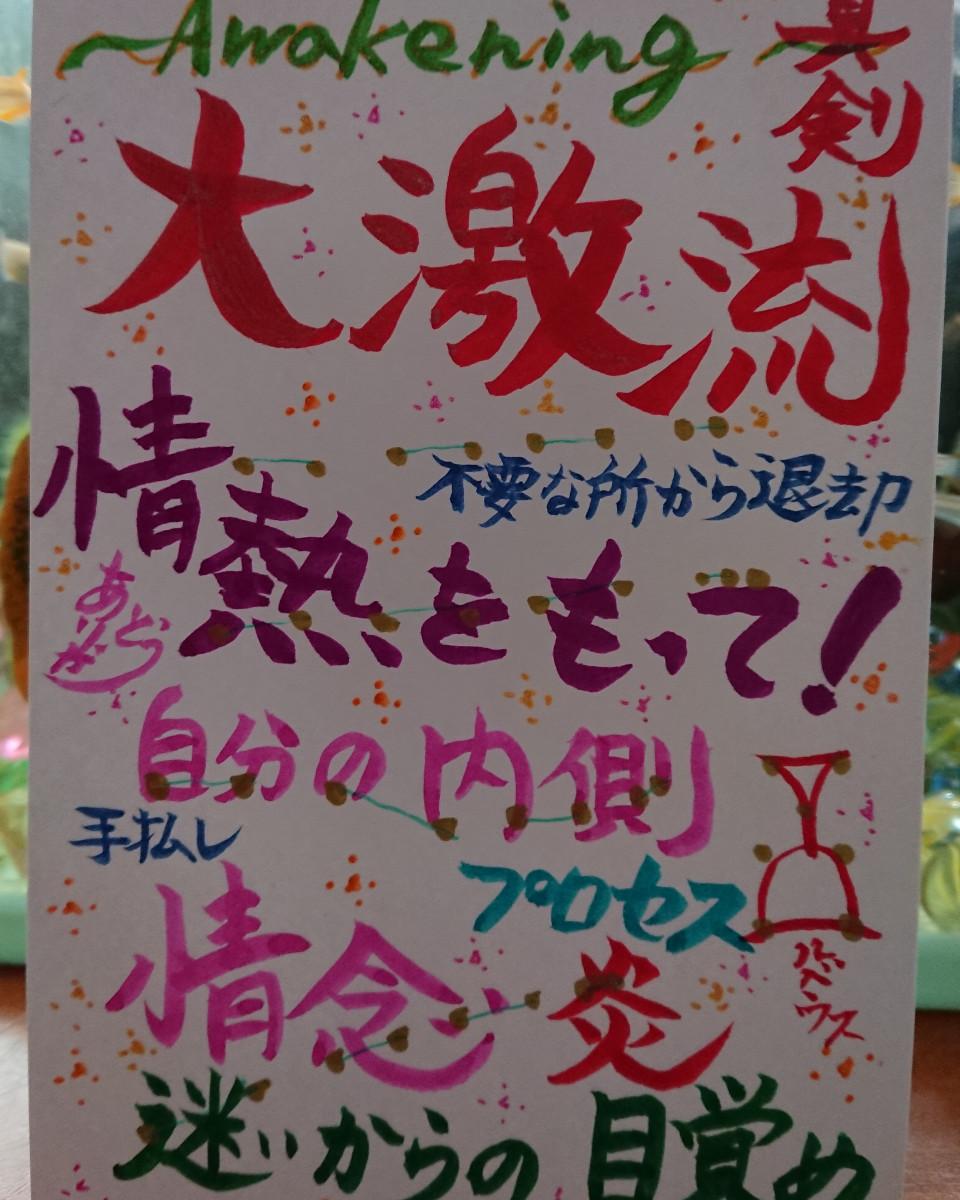 Awakening
真剣
大激流
不要な所から退却
情熱をもって!
ありがとう
自分の内側
手払し
プロセス
情念
炎
迷いからの目覚め